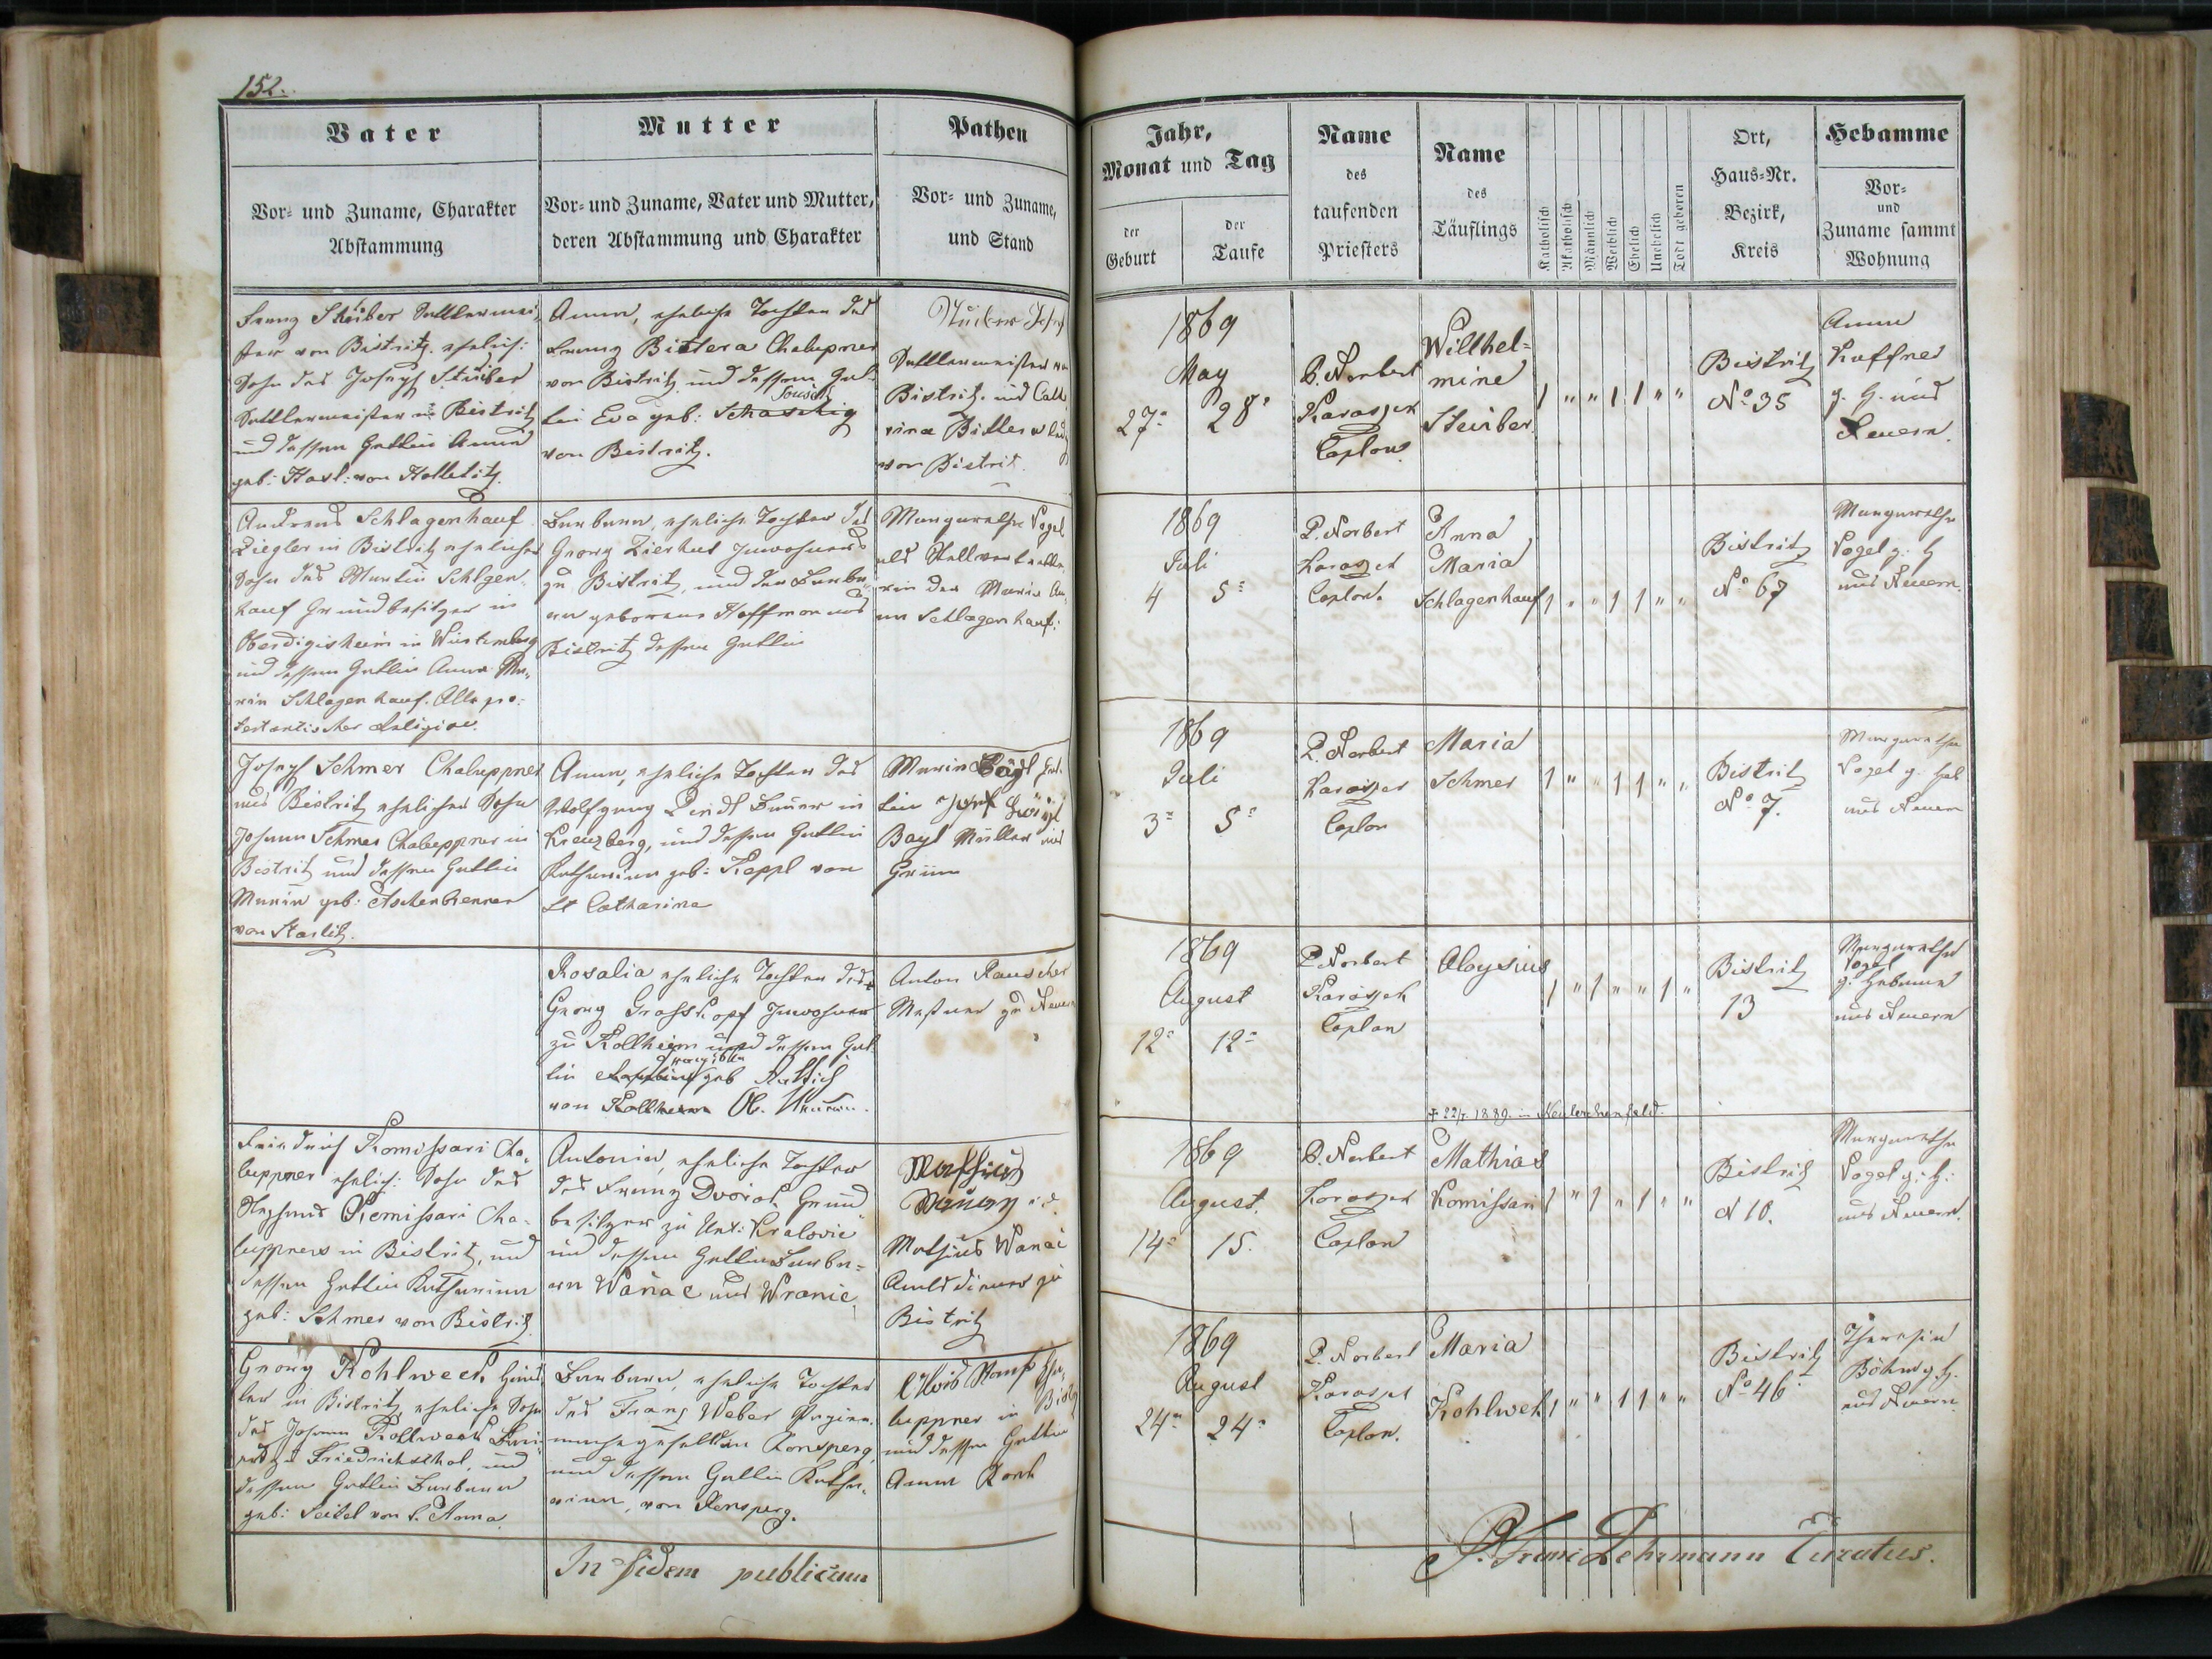 152.
Vater
Vor- und Zuname, Charakter
Abstammung
Mutter
Vor- und Zuname, Vater und Mutter,
deren Abstammung und Charakter
Pathen
Vor- und Zuname,
und Stand
Franz Steiber Sattlermei-
ster von Bistritz. ehelich:
Sohn des Joseph Steiber
Sattlermeister in Bistritz
und dessen Gattin Anna
geb: von
Anna, eheliche Tochter des
Franz Bittera Chalupner
von Bistritz und dessen Gat-
Tousch
tin Eva geb:
von Bistritz.
Sattlermeister
Bistritz. und Cath
rina Bittera
von Bistrit.
Andreas Schlagenhauf
Ziegler in Bistritz ehelicher
Sohn des Martin Schlgen-
hauf Grundbesitzer in
Oberdigisheim in Würtemberg
und dessen Gattin Anna Ma-
ria Schlagenhauf. Alle pro-
testantischer Religion.
Barbara, eheliche Tochter des
Georg Zierhut Inwohners
zu Bistritz, und der Barba-
ra geborene Hoffman aus
Bistritz dessen Gattin
Margaretha Vogel
als Stellvertrette-
rin der Maria An-
na Schlagenhauf.
Joseph Schmer Chaluppner
aus Bistritz ehelicher Sohn
Johann Schmer Chaluppner in
Bistritz und dessen Gattin
Maria geb: Aschenbrenner
von Starlitz.
Anna, eheliche Tochter des
Wolfgang Bauer in
Kreuzberg, und dessen Gattin
Katharina geb: Kappl von
St Catharina
Maria Gat-
tin
Bayl Müller aus
Grün
Rosalia eheliche Tochter des
Georg Grosskopf Inwohner
zu Kollheim und dessen Gat-
tin geb
von Ob.
Anton Rauscher
Meßner zu Neuern
Friedrich Komissari Cha-
luppner ehelich: Sohn des
Stephans Komissari Cha-
luppners in Bistritz, und
dessen Gattin Katharina
geb: Schmer von Bistritz
Antonia, eheliche Tochter
des Franz Dvořak Grund
besitzer zu Unt: Kralovic
und dessen Gattin Barba-
ra Waňač aus Wranic
Mathias
Mathias Wanač
Amtsdiener zu
Bistritz
Georg Kohlweck
ler in Bistritz eheliche Sohn
des Johann Kollweck
zu Friedrichsthal, und
dessen Gattin Barbara
geb: Seidel von S. Anna.
Barbara, eheliche Tochter
des Franz Weber
Ronsperg,
und dessen Gattin Katha-
rina, von Ronsperg.
Alois Cha-
luppner in Bistr
und dessen Gattin
Anna
In fidem publicam
Jahr,
Monat und Tag
der
Geburt
der
Taufe
Name
des
taufenden
Priesters
Name
des
Täuflings
Katholisch
Akatholisch
Männlich
Weiblich
Ehelich
Unehelich
Todt geboren
Ort,
Haus-Nr.
Bezirk,
Kreis
Hebamme
Vor-
und
Zuname sammt
Wohnung
1869
May
27. 28.
P. Norbert
Karaszek
Caplan
Willhel-
mine
Steiber
1 " " 1 1 " "
Bistritz
No 35
Anna
g. H. aus
Neuern.
1869
Juli
4 5.
P. Norbert
Karaszek
Caplan.
Anna
Maria
Schlagenhauf
1 " " 1 1 " "
Bistritz
No 67
Margaretha
Vogel g. H
aus Neuern.
1869
Juli
3. 5.
P. Norbert
Karaszek
Caplan
Maria
Schmer
1 " " 1 1 " "
Bistritz
No 7.
Margaretha
Vogel g. Heb
aus Neuern
1869
August
12. 12.
P. Norbert
Karaszek
Caplan
Aloysius
1 " 1 " " 1 "
Bistritz
13
Margaretha
Vogel
g. Hebamme
aus Neuern
+ 22/7. 1889. in Neulerchenfeld.
1869
August.
14. 15.
P. Norbert
Karaszek
Caplan
Mathias
Komissari
1 " 1 " 1 " "
Bistritz
N 10.
Margaretha
Vogel g: H:
aus Neuern.
1869
August
24. 24.
P. Norbert
Karaszek
Caplan.
Maria
Kohlwek
1 " " 1 1 " "
Bistritz
No 46
Theresia
Böhm g. H.
aus Neuern.
P. Franz Lehrmann Curatus.